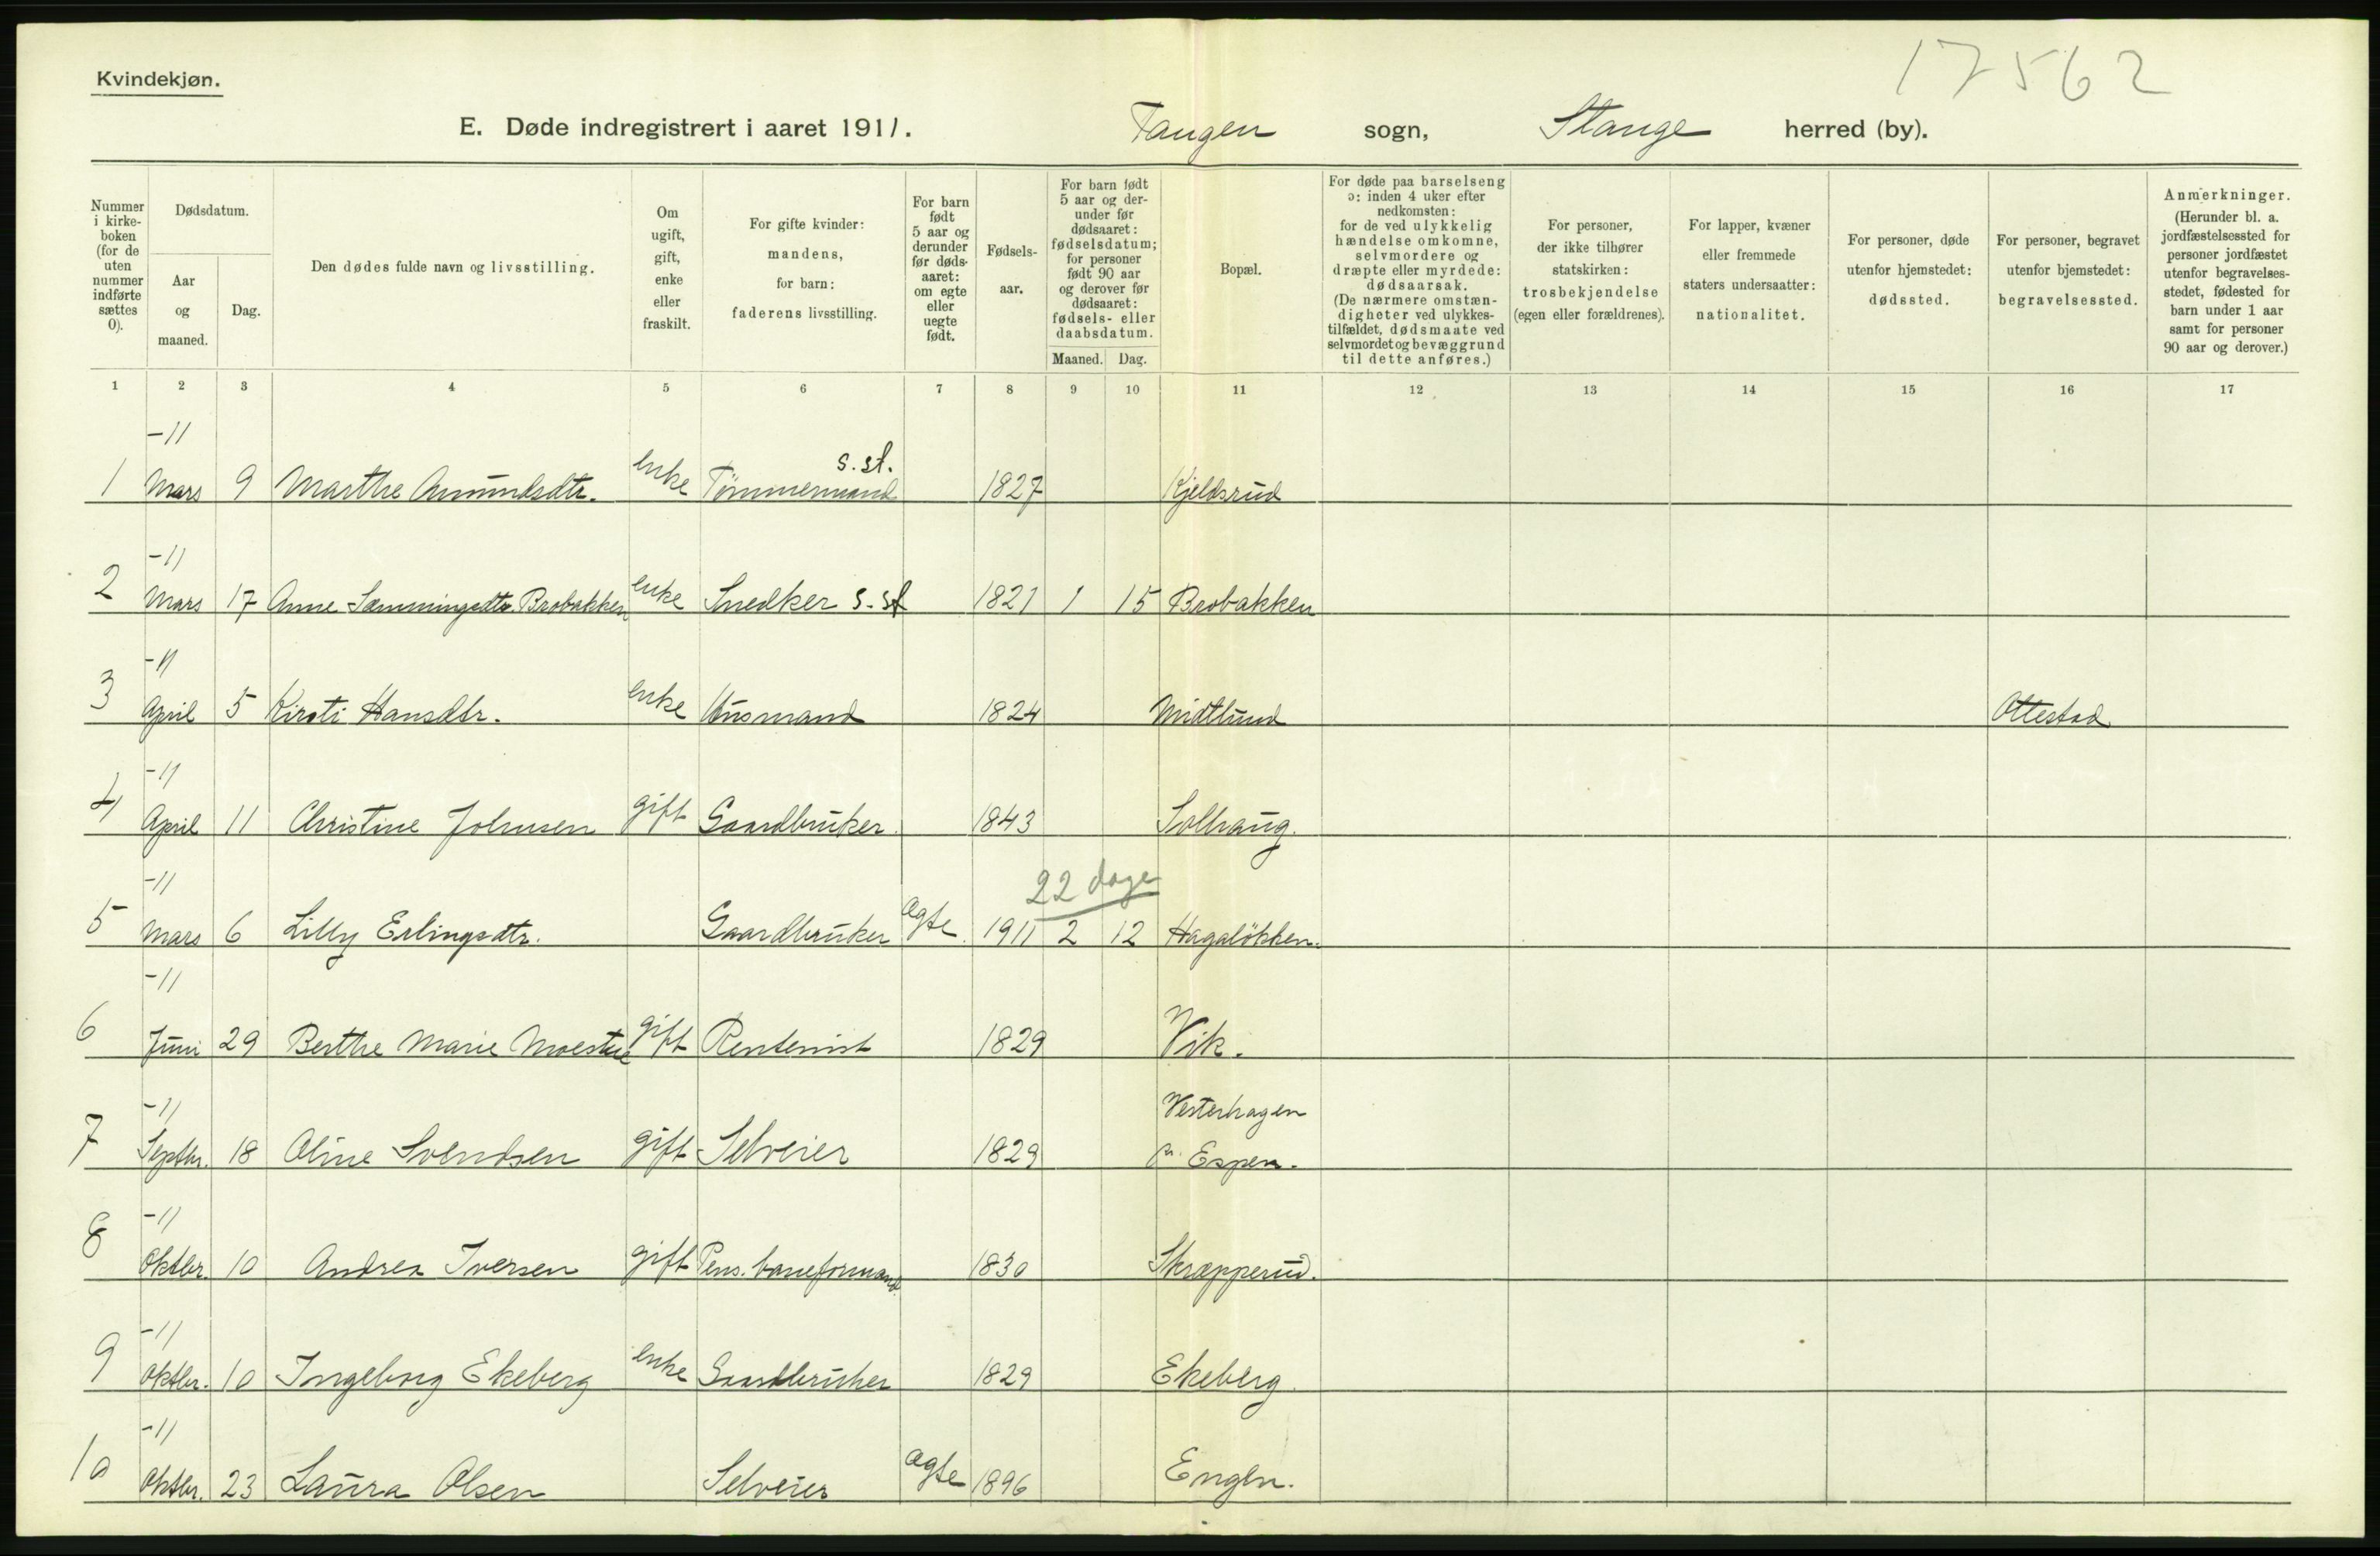 17562
Kvindekjøn.
E. Døde indregistrert i aaret 1911. Tangen sogn, Stange herred (by).
Nummer i kirkeboken (for de uten nummer indførte sættes 0).
Dødsdatum.
Aar og maaned.
Dag.
Den dødes fulde navn og livsstilling.
Om ugift, gift, enke eller fraskilt.
For gifte kvinder: mandens, for barn: faderens livsstilling.
For barn født 5 aar og derunder før dødsaaret: om egte eller uegte født.
Fødselsaar.
For barn født 5 aar og derunder før dødsaaret: fødselsdatum; for personer født 90 aar og derover før dødsaaret: fødsels- eller daabsdatum.
Maaned. Dag.
Bopæl.
For døde paa barselseng ɔ: inden 4 uker efter nedkomsten: for de ved ulykkelig hændelse omkomne, selvmordere og dræpte eller myrdede: dødsaarsak. (De nærmere omstændigheter ved ulykkestilfældet, dødsmaate ved selvmordet og bevæggrund til dette anføres.)
For personer, der ikke tilhører statskirken: trosbekjendelse (egen eller forældrenes).
For lapper, kvæner eller fremmede staters undersaatter: nationalitet.
For personer, døde utenfor hjemstedet: dødssted.
For personer, begravet utenfor bjemstedet: begravelsessted.
Anmerkninger. (Herunder bl. a. jordfæstelsessted for personer jordfæstet utenfor begravelsesstedet, fødested for barn under 1 aar samt for personer 90 aar og derover.)
1 2 3 4 5 6 7 8 9 10 11 12 13 14 15 16 17
-11
1 Mars 9 Marthe Amundsdtr. enke Tømmermand s.st. 1827 Kjeldsrud
-11
2 Mars 17 Anne Sæmmingsdtr Brobakken enke Snedker s.st 1821 1 15 Brobakken
-11
3 April 5 Kirsti Hansdtr. enke Husmand 1824 Midtlund Ottestad
-11
4 April 11 Christine Johnsen gift Gaardbruker. 1843 Solhaug.
-11 22 dage
5 Mars 6 Lilly Erlingsdtr. Gaardbruker Ægte 1911 2 12 Hagaløkken.
-11
6 Juni 29 Berthe Marie Moestue gift Rentenist 1829 Vik.
-11 Vesterhagen
7 Septbr. 18 Oline Svendsen gift Selveier 1829 Pr. Espen.
-11
8 Oktbr. 10 Andrea Iversen gift Pens. baneformand 1830 Skrapperud.
-11
9 Oktbr. 10 Ingeborg Ekeberg enke Gaardbruker 1829 Ekeberg.
-11
10 Oktbr. 23 Laura Olsen Selveier Ægte 1896